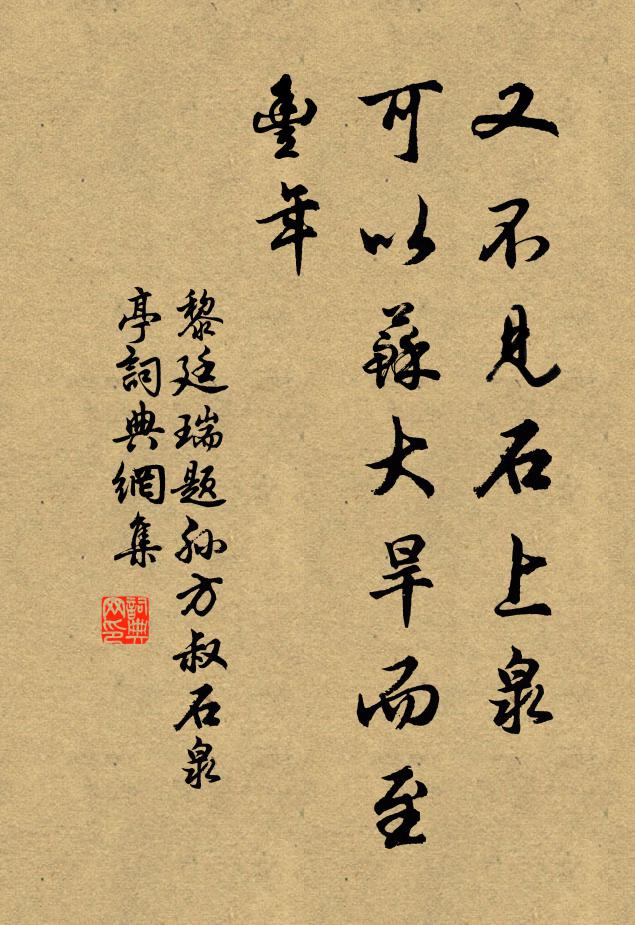 又不見石上泉
可以蘇大旱而至
豐年
黎廷瑞題孙方叔石泉
亭詞典網集
詞典网印